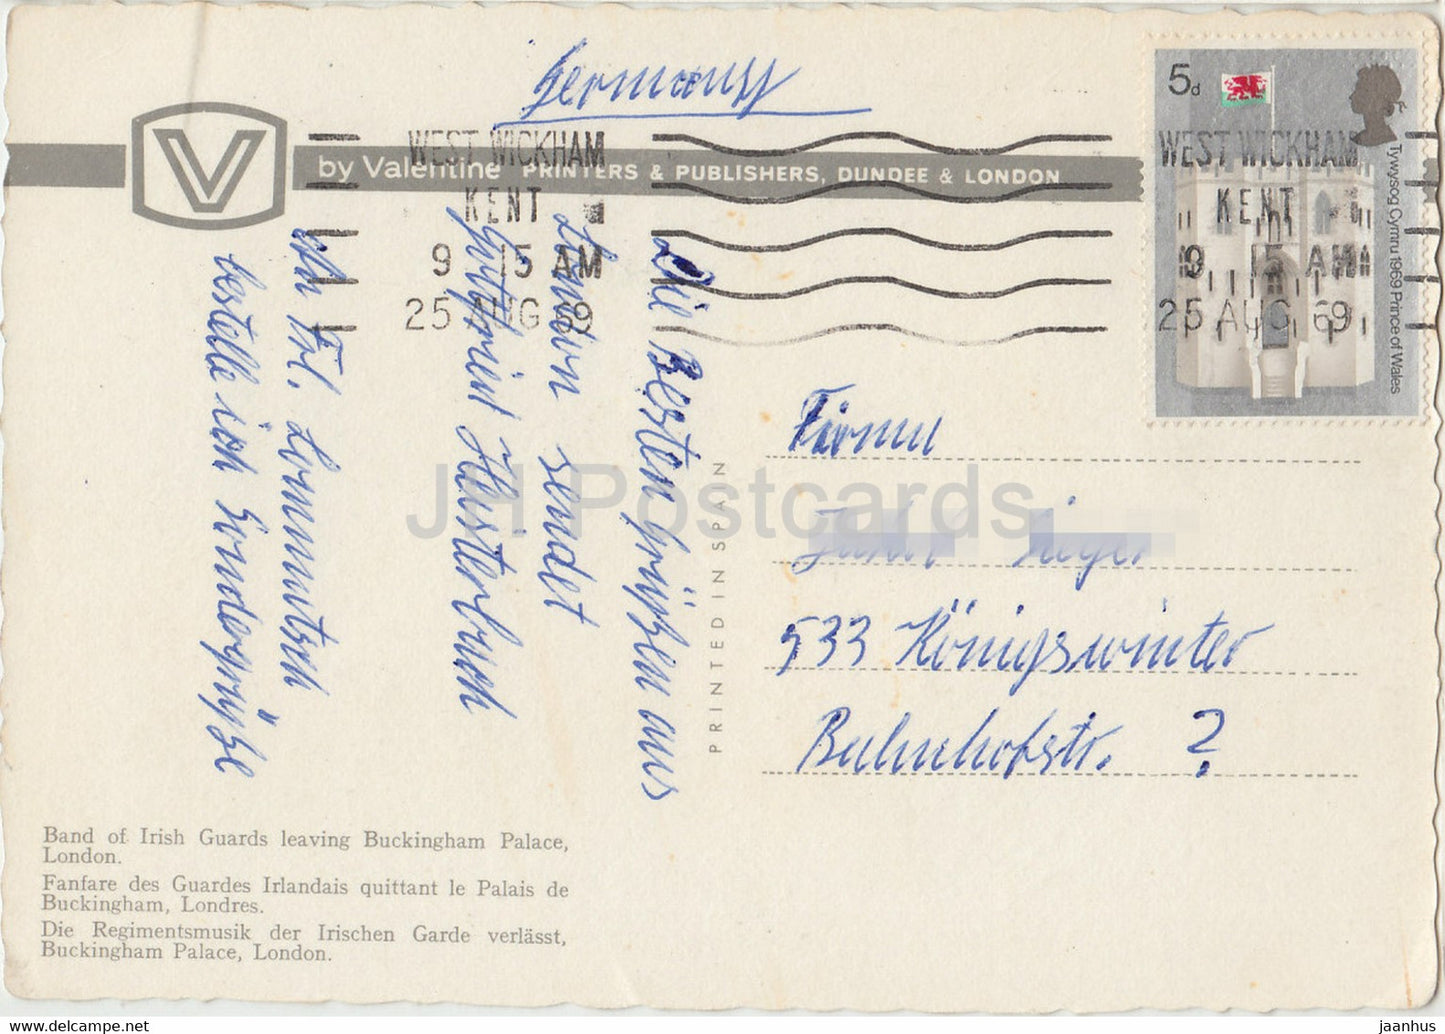 Germany
V
by Valentine PRINTERS & PUBLISHERS, DUNDEE & LONDON
WEST WICKHAM
KENT
9 15 AM
25 AUG 69
5d
Tywysog Cymru 1969 Prince of Wales
WEST WICKHAM
KENT
9 15 AM
25 AUG 69
Die Besten Grüßen aus
London sendet
Gottfried Heisterbach
An Frl. Lommutsch
bestelle ich Sondergrüße
PRINTED IN SPAIN
Firma
533 Königswinter
Bahnhofstr. ?
Band of Irish Guards leaving Buckingham Palace,
London.
Fanfare des Guardes Irlandais quittant le Palais de
Buckingham, Londres.
Die Regimentsmusik der Irischen Garde verlässt,
Buckingham Palace, London.
JH Postcards
jaanhus
www.delcampe.net